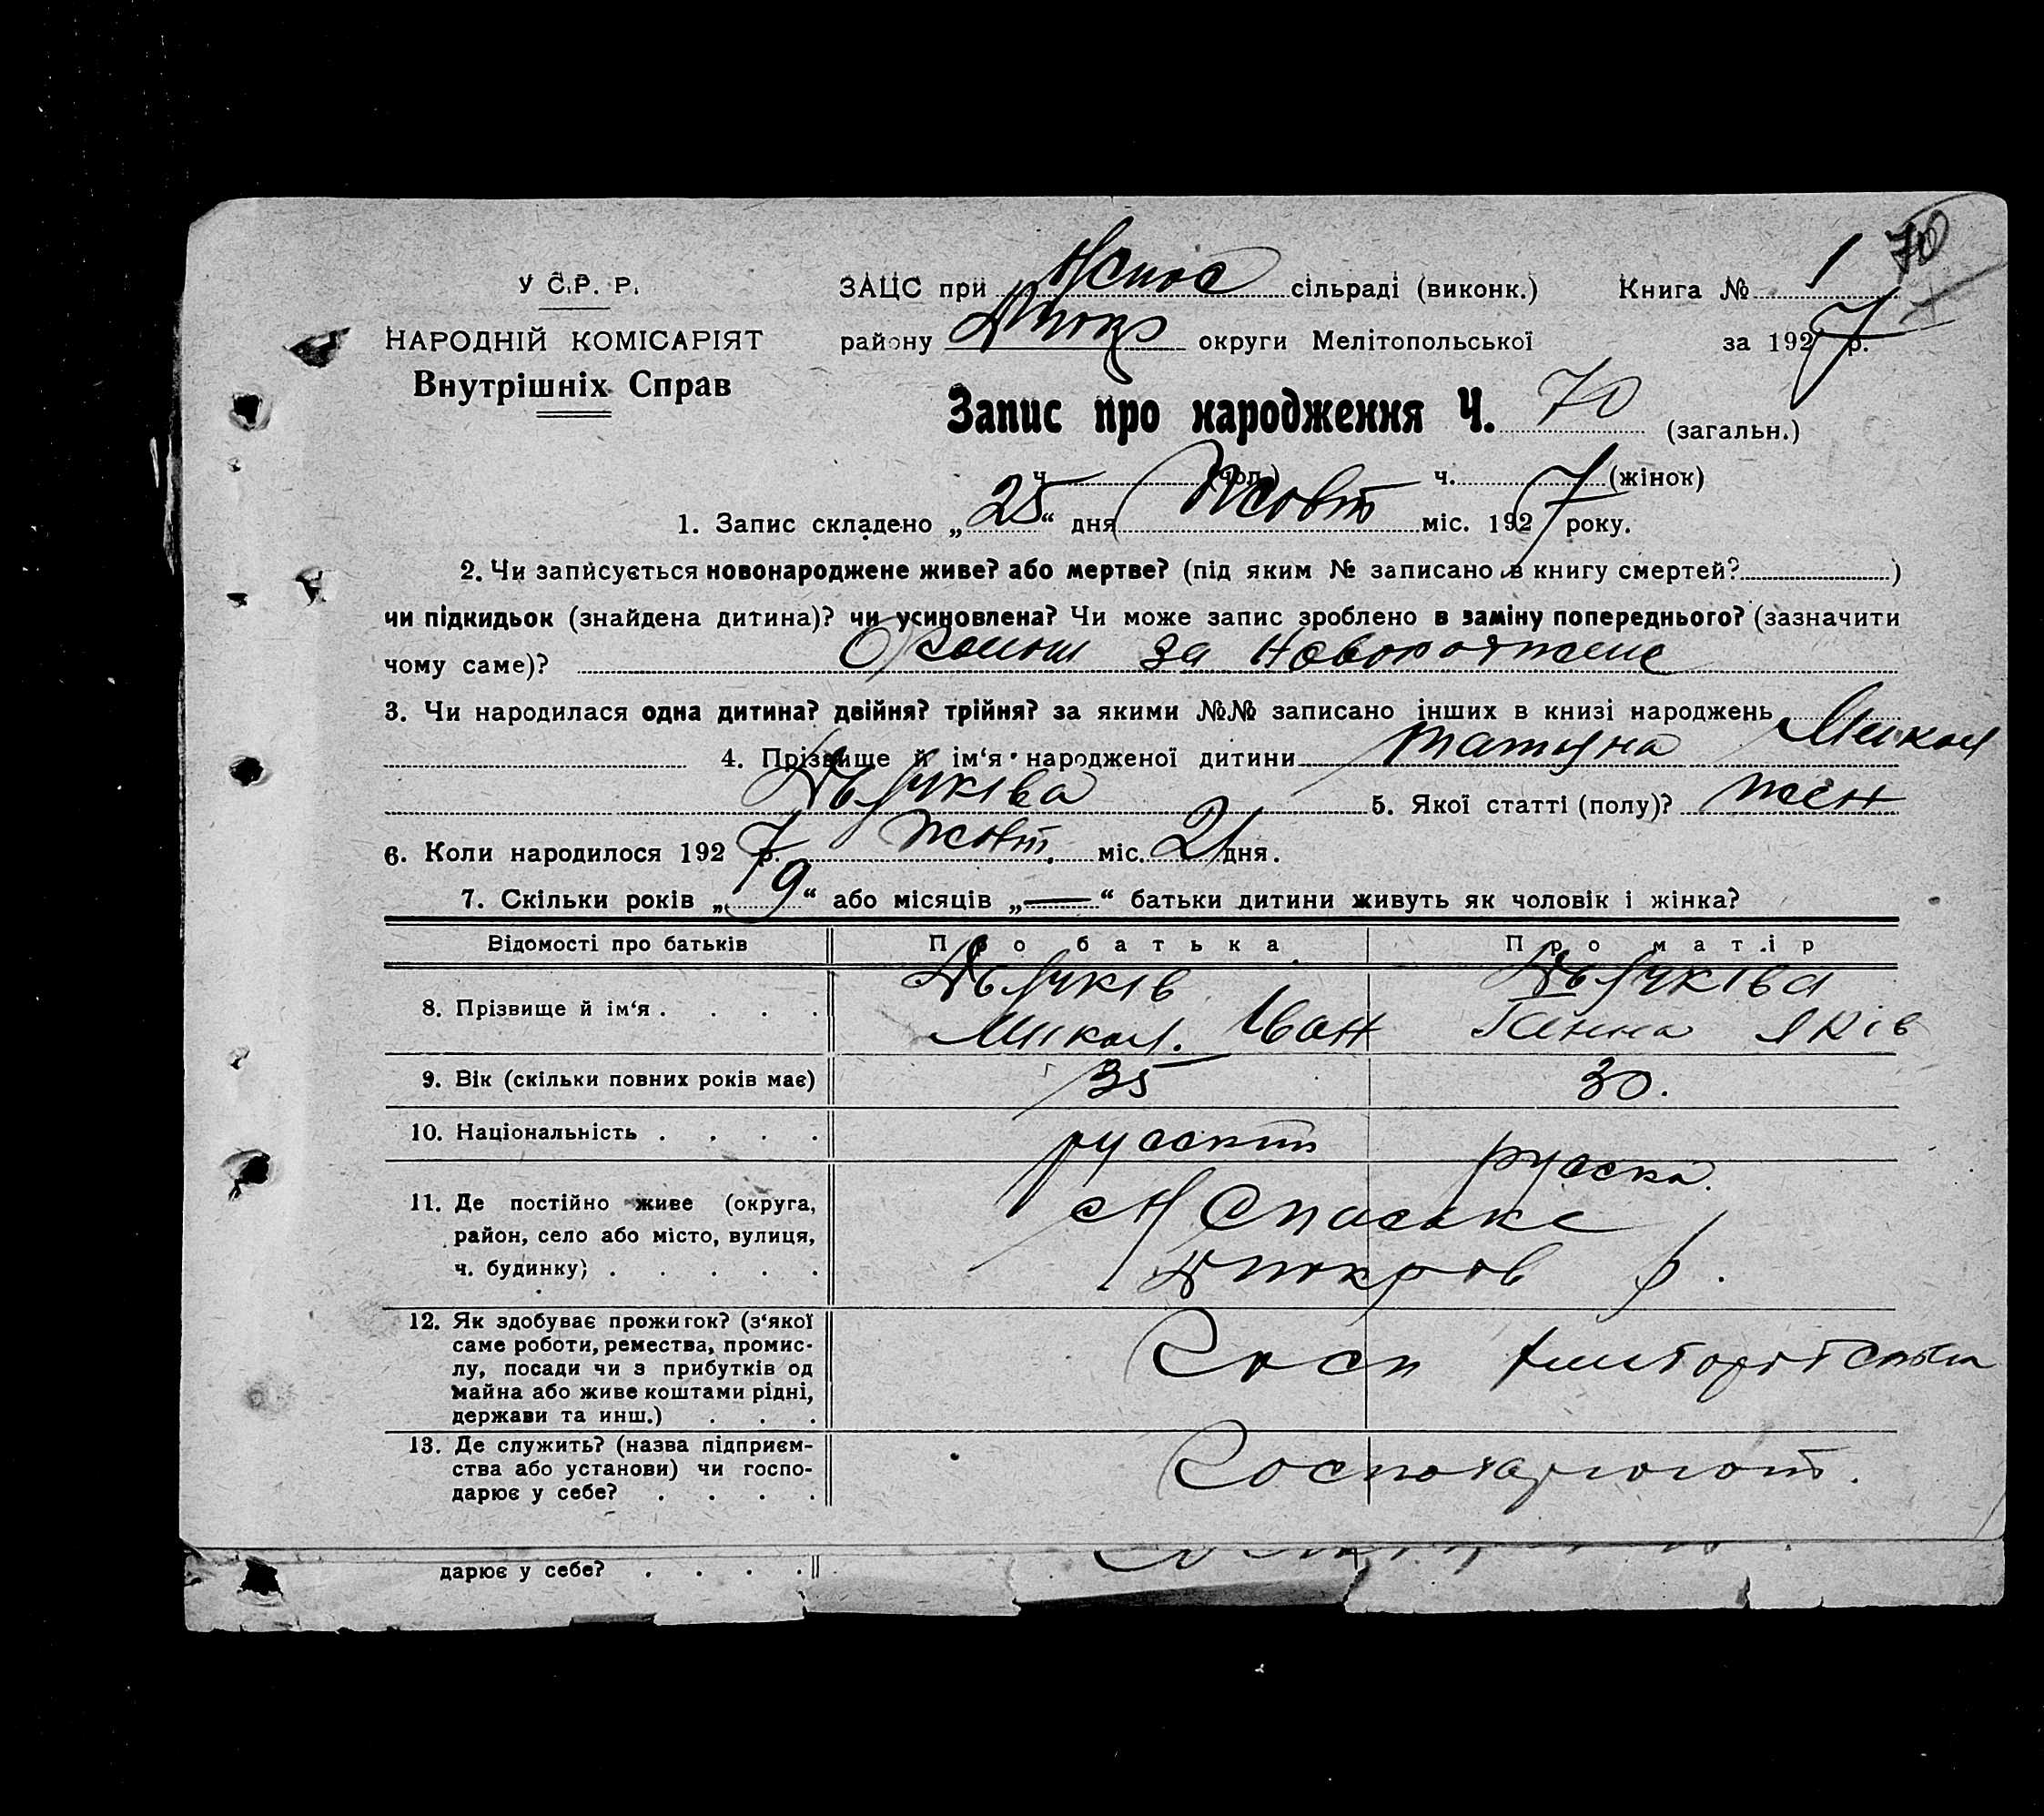 У С.Р. Р.
НАРОДНІЙ КОМІСАРІЯТ
Внутрішніх Справ
ЗАЦС при Нспас сільраді (виконк.) Книга № 1 70
району округи Мелітопольської за 1927 р.
Запис про народження Ч. 70 (загальн.)
ч. (чол.) ч. (жінок)
1. Запис складено „25“ дня Жовт міс. 1927 року.
2. Чи записується новонароджене живе? або мертве? (під яким № записано в книгу смертей? )
чи підкидьок (знайдена дитина)? чи усиновлена? Чи може запис зроблено в заміну попереднього? (зазначити
чому саме)? за
3. Чи народилася одна дитина? двійня? трійня? за якими №№ записано інших в книзі народжень
4. Прізвище й ім‘я народженої дитини Микол
5. Якої статті (полу)? жен
6. Коли народилося 1927 р. жовт. міс. 21 дня.
7. Скільки років „9“ або місяців „—“ батьки дитини живуть як чоловік і жінка?
Відомості про батьків Про батька Про матір
8. Прізвище й ім‘я . . . .
Микол. Іван Ганна Яків
9. Вік (скільки повних років має) 35 30.
10. Національність . . . . русский руска.
11. Де постійно живе (округа, с Н Спаське
район, село або місто, вулиця,
ч. будинку) . . . . . р.
12. Як здобуває прожиток? (з‘якої
саме роботи, ремества, промис-
лу, посади чи з прибутків од
майна або живе коштами рідні,
держави та инш.) . . .
13. Де служить? (назва підприєм-
ства або установи) чи госпо-
дарює у себе? . . . .
дарює у себе? . . . .